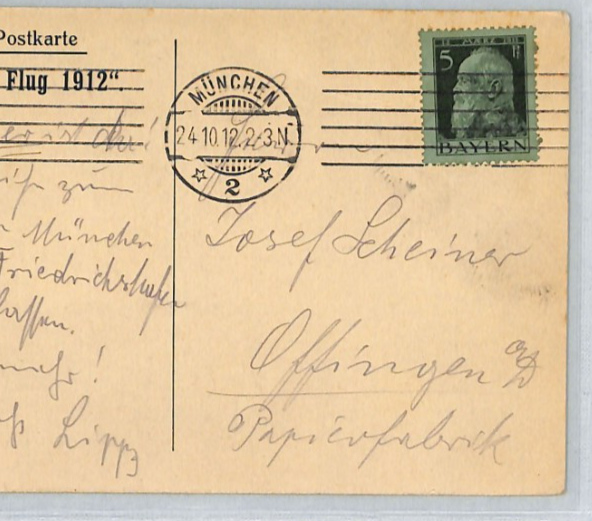 Postkarte
Flug 1912".
er ist da!
zum
München
Friedrichshafen
lassen.
mehr!
Lipp
MÜNCHEN
24.10.12.2-3.N
2
12 MÄRZ 1911
5 Pf
BAYERN
Josef Scheiner
Offingen a/D
Papierfabrik